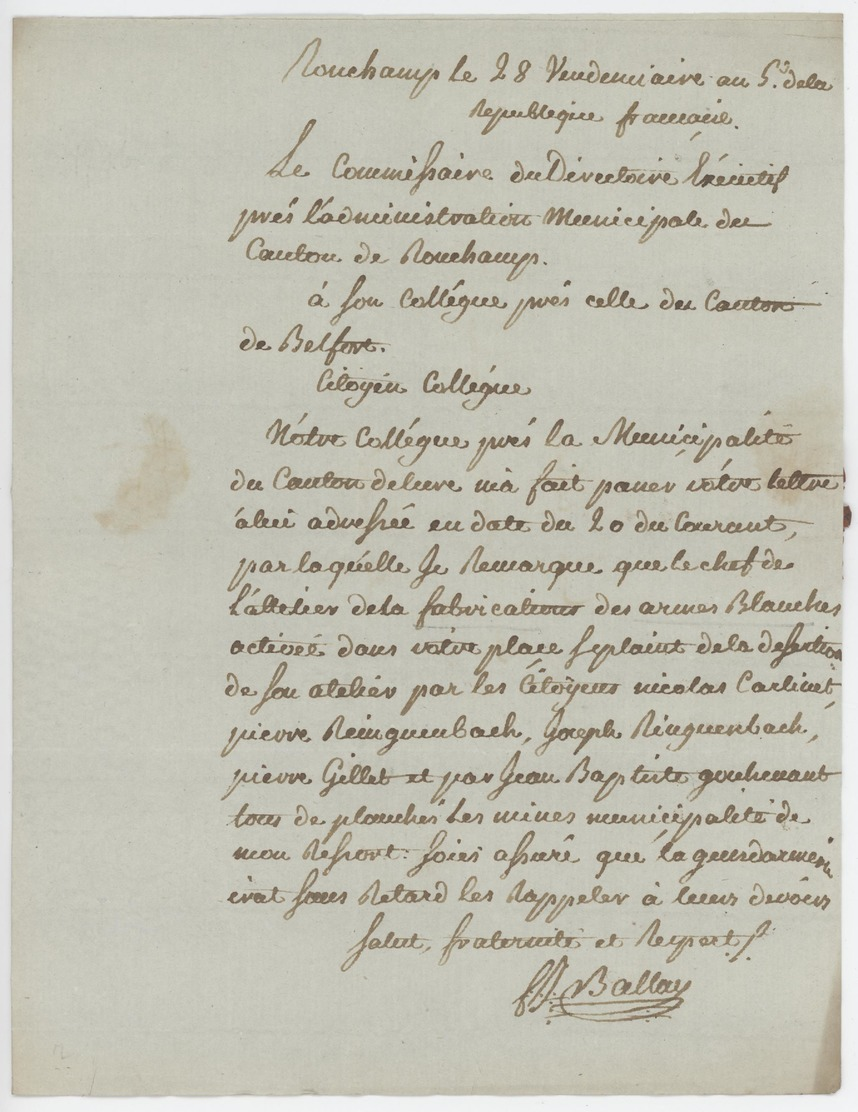 Ronchamp le 28 Vendemiaire an 5.e dela
Republeque francaise.
Le Commissaire du Directoire Exécutif
prés l'administration Municipale du
Canton de Ronchamp.
á son Collégue prés celle du Canton
de Belfort.
Citoyén Collégue
Nótre Collégue prés la Municipalité
du Canton delure m'a fait passer vótre lettre
á lui adressée en date du 20 du Courant,
par laquélle Je Remarque que le chef de
l'attelier dela fabrications des armes Blanches
activeé dans votre place se plaint dela desertion
de son ateliér par les Citoyens nicolas Carlinet,
pierre Reinguenbach, Joseph Ringuenbach,
pierre Gillet et par Jean Baptiste gouhenant
tous de planché les mines municipalité de
mon Ressort. soiés assuré que la gensdarmerie
irat sans Retard les Rappeler á leurs devoirs
Salut, fraternité et Respect
Ballay